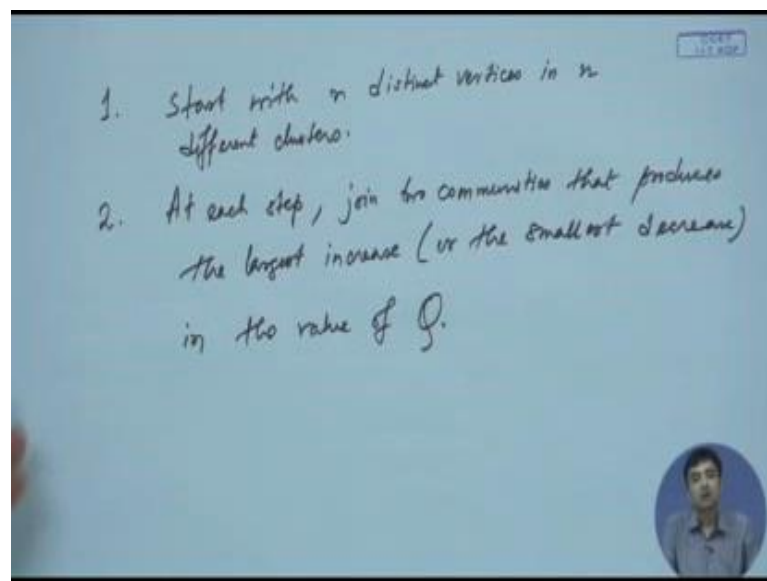 1. Start with n distinct vertices in n
different clusters.
2. At each step, join two communities that produces
the largest increase (or the smallest decrease)
in the value of Q.